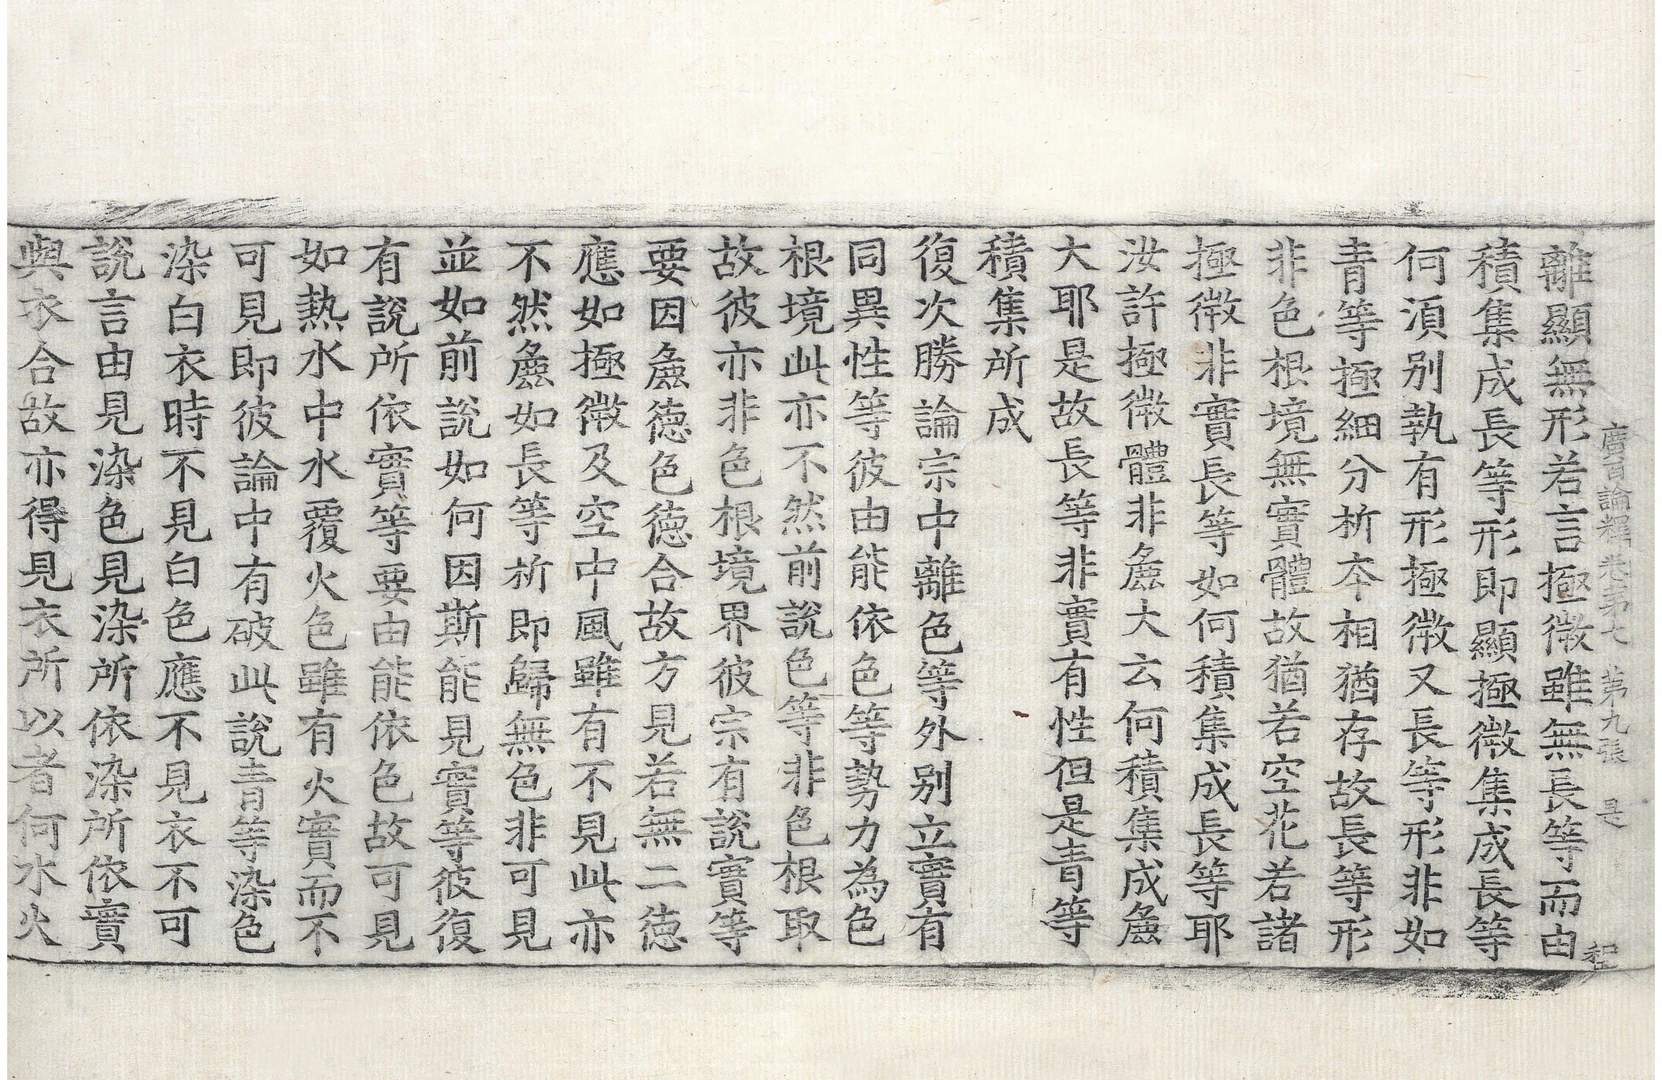 廣百論釋卷第七　第九張　是
程
離顯無形若言極微雖無長等而由
積集成長等形即顯極微集成長等
何湏别執有形極微又長等形非如
青等極細分析夲相猶存故長等形
非色根境無實體故猶若空花若諸
極微非實長等如何積集成長等耶
汝許極微體非麁大云何積集成麁
大耶是故長等非實有性但是青等
積集所成
復次勝論宗中離色等外别立實有
同異性等彼由能依色等勢力為色
根境此亦不然前說色等非色根取
故彼亦非色根境界彼宗有說實等
要因麁德色德合故方見若無二德
應如極微及空中風雖有不見此亦
不然麁如長等析即歸無色非可見
並如前說如何因斯能見實等彼復
有說所依實等要由能依色故可見
如熱水中水覆火色雖有火實而不
可見即彼論中有破此說青等染色
染白衣時不見白色應不見衣不可
說言由見染色見染所依染所依實
與衣合故亦得見衣所以者何水火